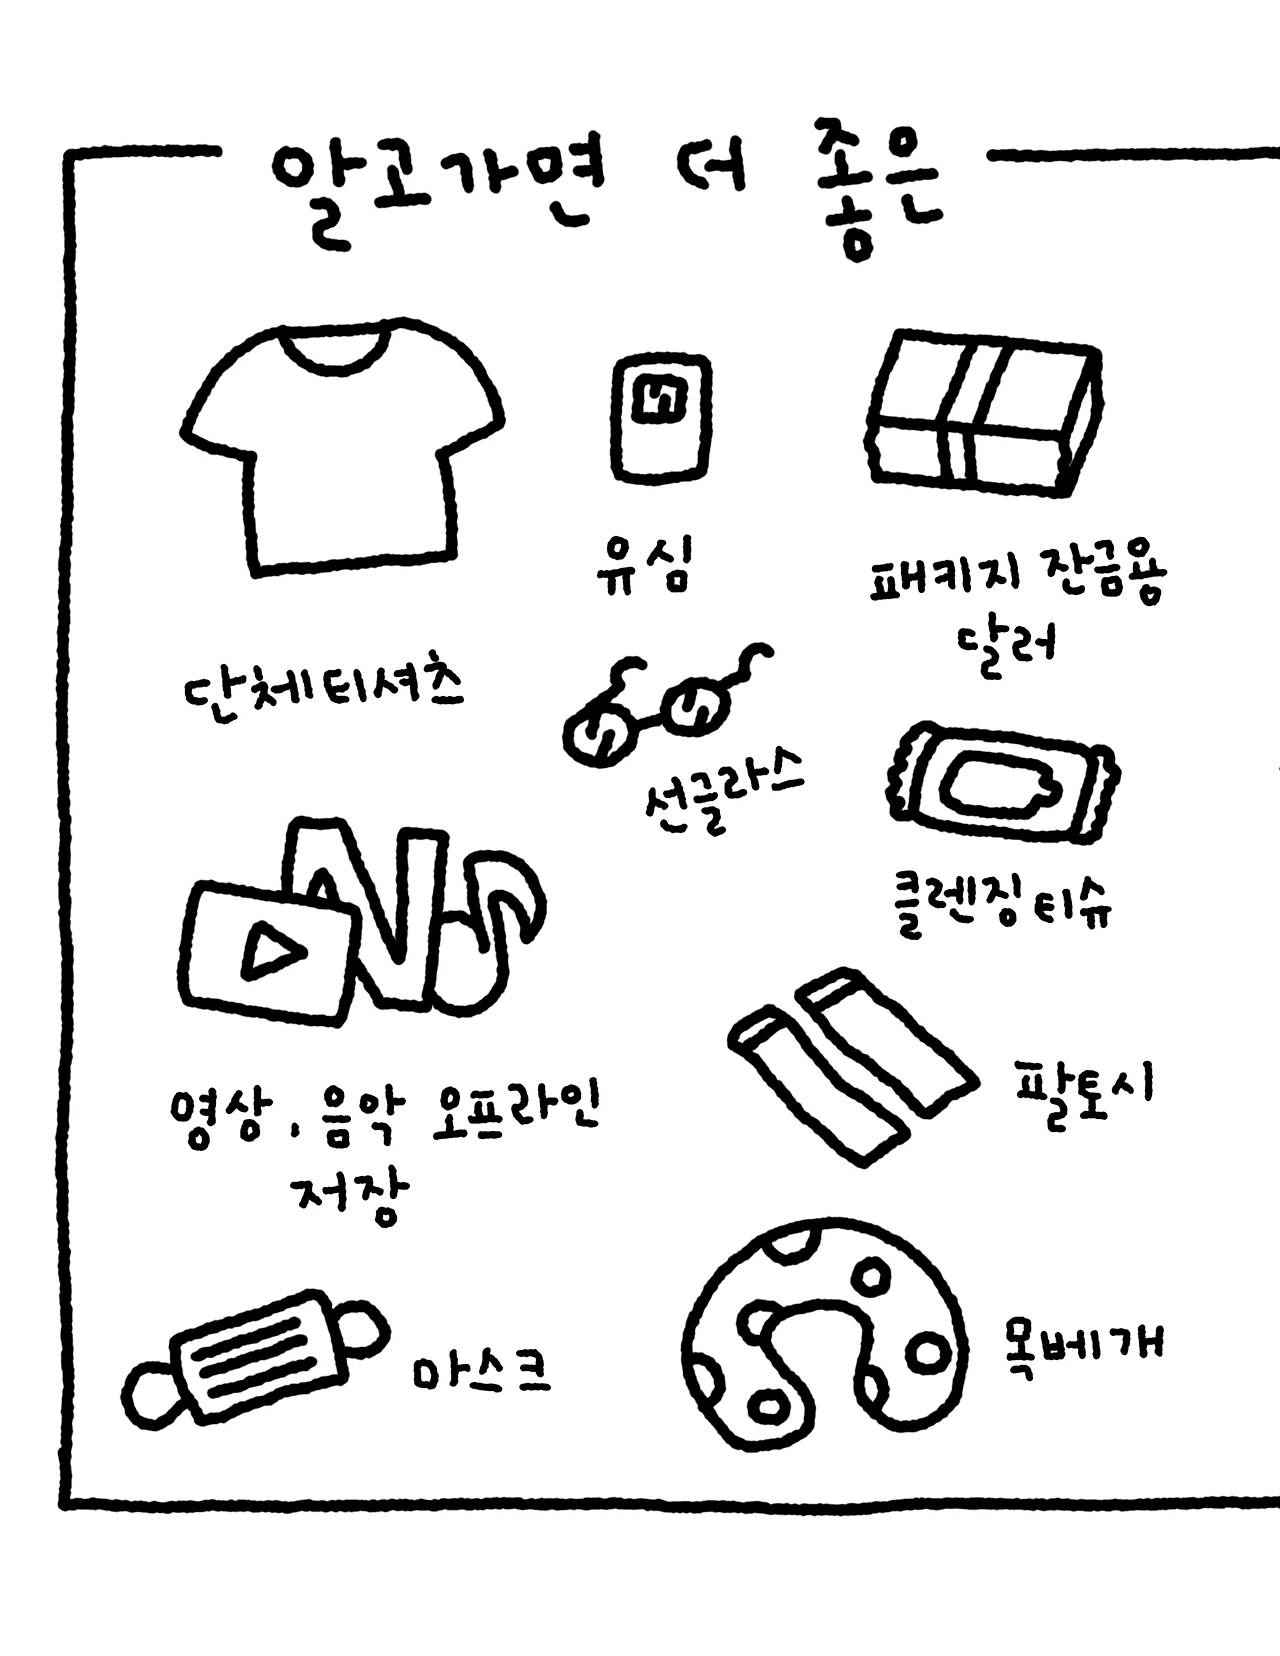 알고가면 더 좋은
유심
패키지 잔금용
달러
단체티셔츠
선글라스
클렌징티슈
영상, 음악 오프라인
저장
팔토시
마스크
목베개